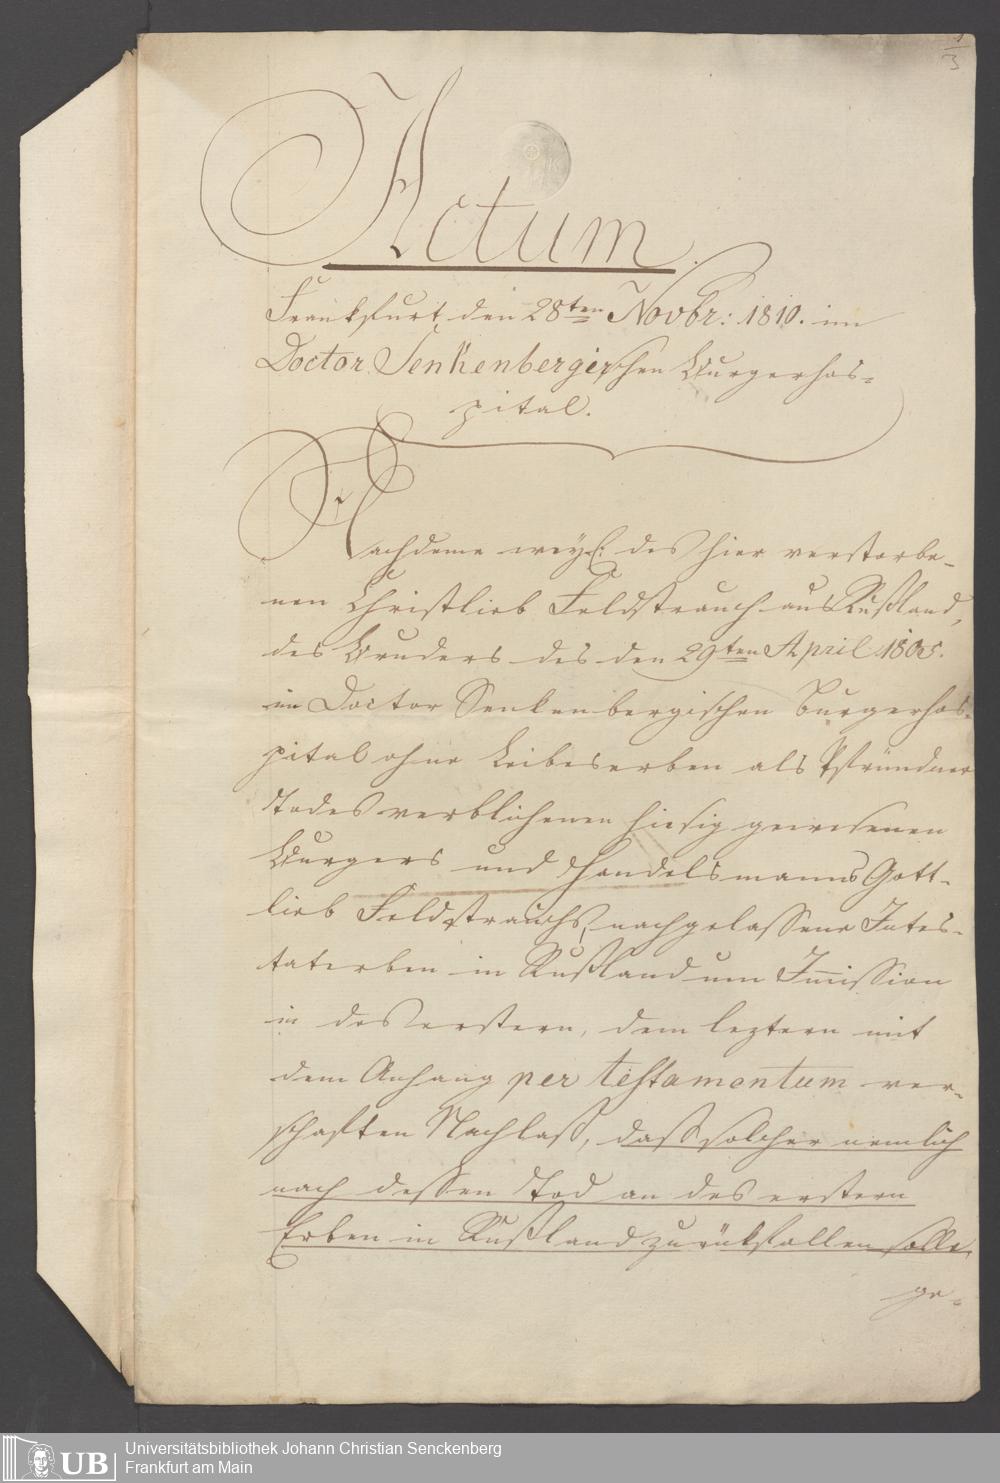 1/3
Actum
Frankfurt den 28ten Novbr: 1810. im
Doctor Senkenbergischen Burgerhos=
pital.
Nachdeme weyl: des hier verstorbe-
nen Christlieb Feldstrauch aus Rußland,
des Bruders des den 29ten April 1805.
im Doctor Senkenbergischen Burgerhos=
pital ohne Leibeserben als Pfründner
Todes verblichenen hiesig gewesenen
Burgers und Handelsmanns Gott-
lieb Feldstrauchs, nachgelassene Intes-
taterben in Rußland um Immission
in des erstern, dem leztern mit
dem Anhang per testamentum ver-
schafften Nachlaß, daß solcher nemlich
nach dessen Tod an des erstern
Erben in Rußland zurükfallen solle,
ge-
UB
Universitätsbibliothek Johann Christian Senckenberg
Frankfurt am Main